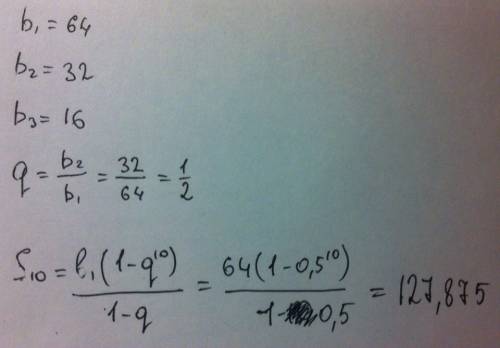 b₁ = 64
b₂ = 32
b₃ = 16
q = b₂/b₁ = 32/64 = 1/2
S₁₀ = b₁(1-q¹⁰)/1-q = 64(1-0,5¹⁰)/1-0,5 = 127,875